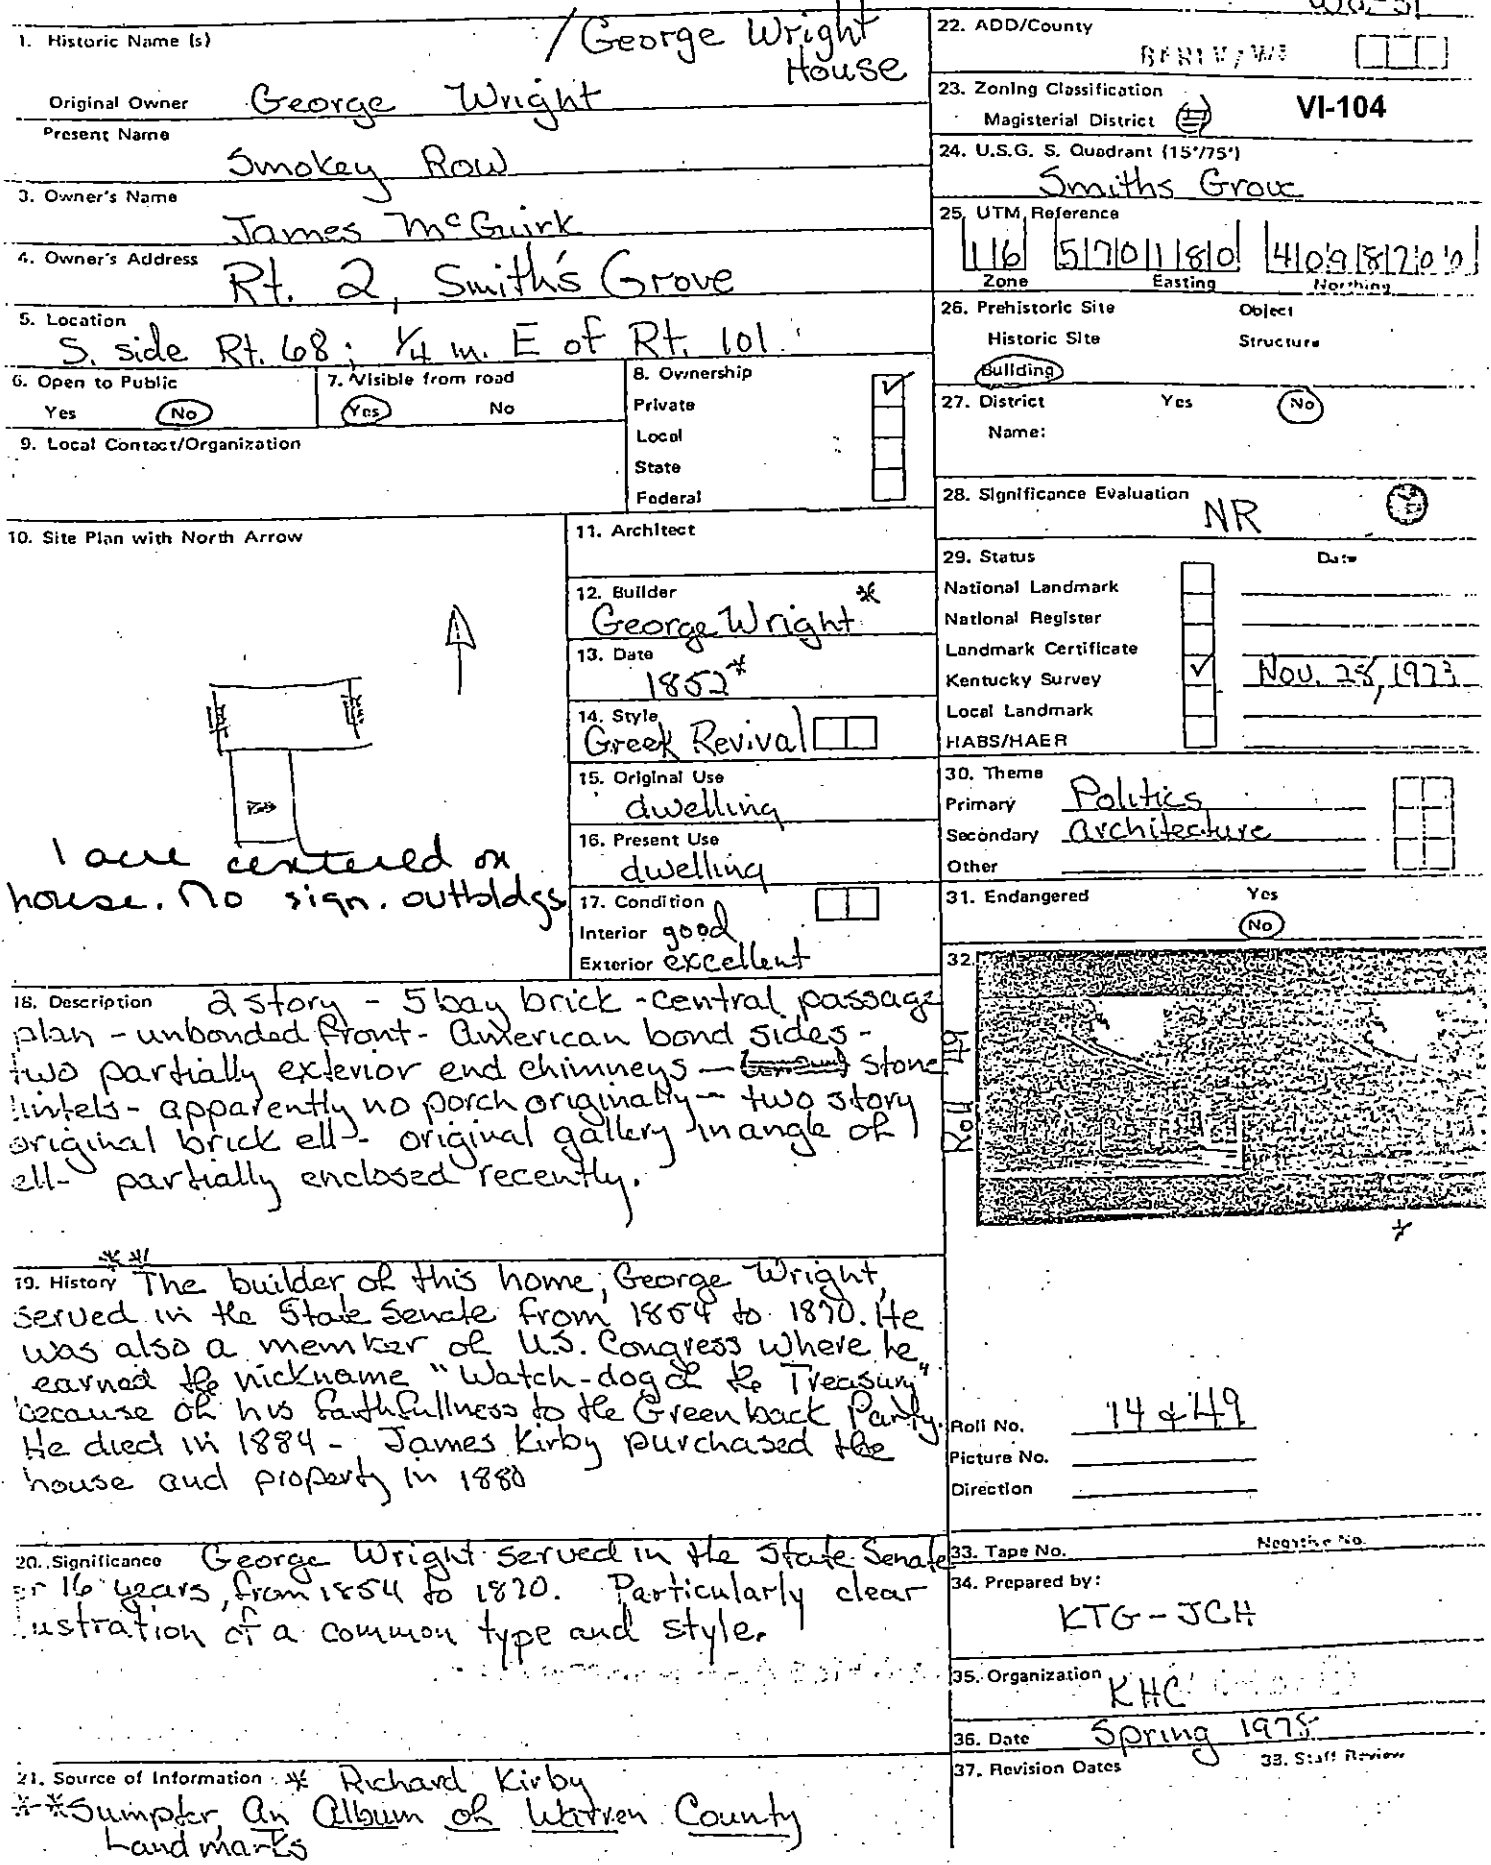 1. Historic Name (s)
/George Wright
House
Original Owner George Wright
Present Name
Smokey Row
3. Owner's Name
James McGuirk
4. Owner's Address
Rt. 2, Smith's Grove
5. Location
S. side Rt. 68; 1/4 m. E of Rt. 101.
6. Open to Public
Yes No
7. Visible from road
Yes No
8. Ownership
Private ✓
Local
State
Federal
9. Local Contact/Organization
10. Site Plan with North Arrow
1 acre centered on
house. No sign. outbldgs
11. Architect
12. Builder *
George Wright
13. Date
1852*
14. Style
Greek Revival
15. Original Use
dwelling
16. Present Use
dwelling
17. Condition
Interior good
Exterior excellent
18. Description 2 story - 5 bay brick - central passage
plan - unbonded front - American bond sides -
two partially exterior end chimneys - stone
lintels - apparently no porch originally - two story
original brick ell - original gallery in angle of
ell - partially enclosed recently.
**
19. History The builder of this home, George Wright,
served in the State Senate from 1854 to 1870. He
was also a memker of U.S. Congress where he
earned the nickname "Watch-dog of the Treasury"
because of his faithfullness to the Greenback Party.
He died in 1884 - James Kirby purchased the
house and property in 1880
20. Significance George Wright served in the State Senate
or 16 years, from 1854 to 1870. Particularly clear
ustration of a common type and style.
21. Source of Information * Richard Kirby
** Sumpter, An Album of Warren County
Landmarks
22. ADD/County
23. Zoning Classification
Magisterial District VI-104
24. U.S.G. S. Quadrant (15'/75')
Smiths Grove
25. UTM Reference
16 570180 4098200
Zone Easting Northing
26. Prehistoric Site Object
Historic Site Structure
Building
27. District Yes No
Name:
28. Significance Evaluation
NR
29. Status Date
National Landmark
National Register
Landmark Certificate
Kentucky Survey ✓ Nov. 28, 1973
Local Landmark
HABS/HAER
30. Theme
Primary Politics
Secondary architecture
Other
31. Endangered Yes
No
32.
Roll 49
Roll No. 14 & 49
Picture No.
Direction
Negative No.
33. Tape No.
34. Prepared by:
KTG-JCH
35. Organization KHC
36. Date Spring 1978
37. Revision Dates 38. Staff Review